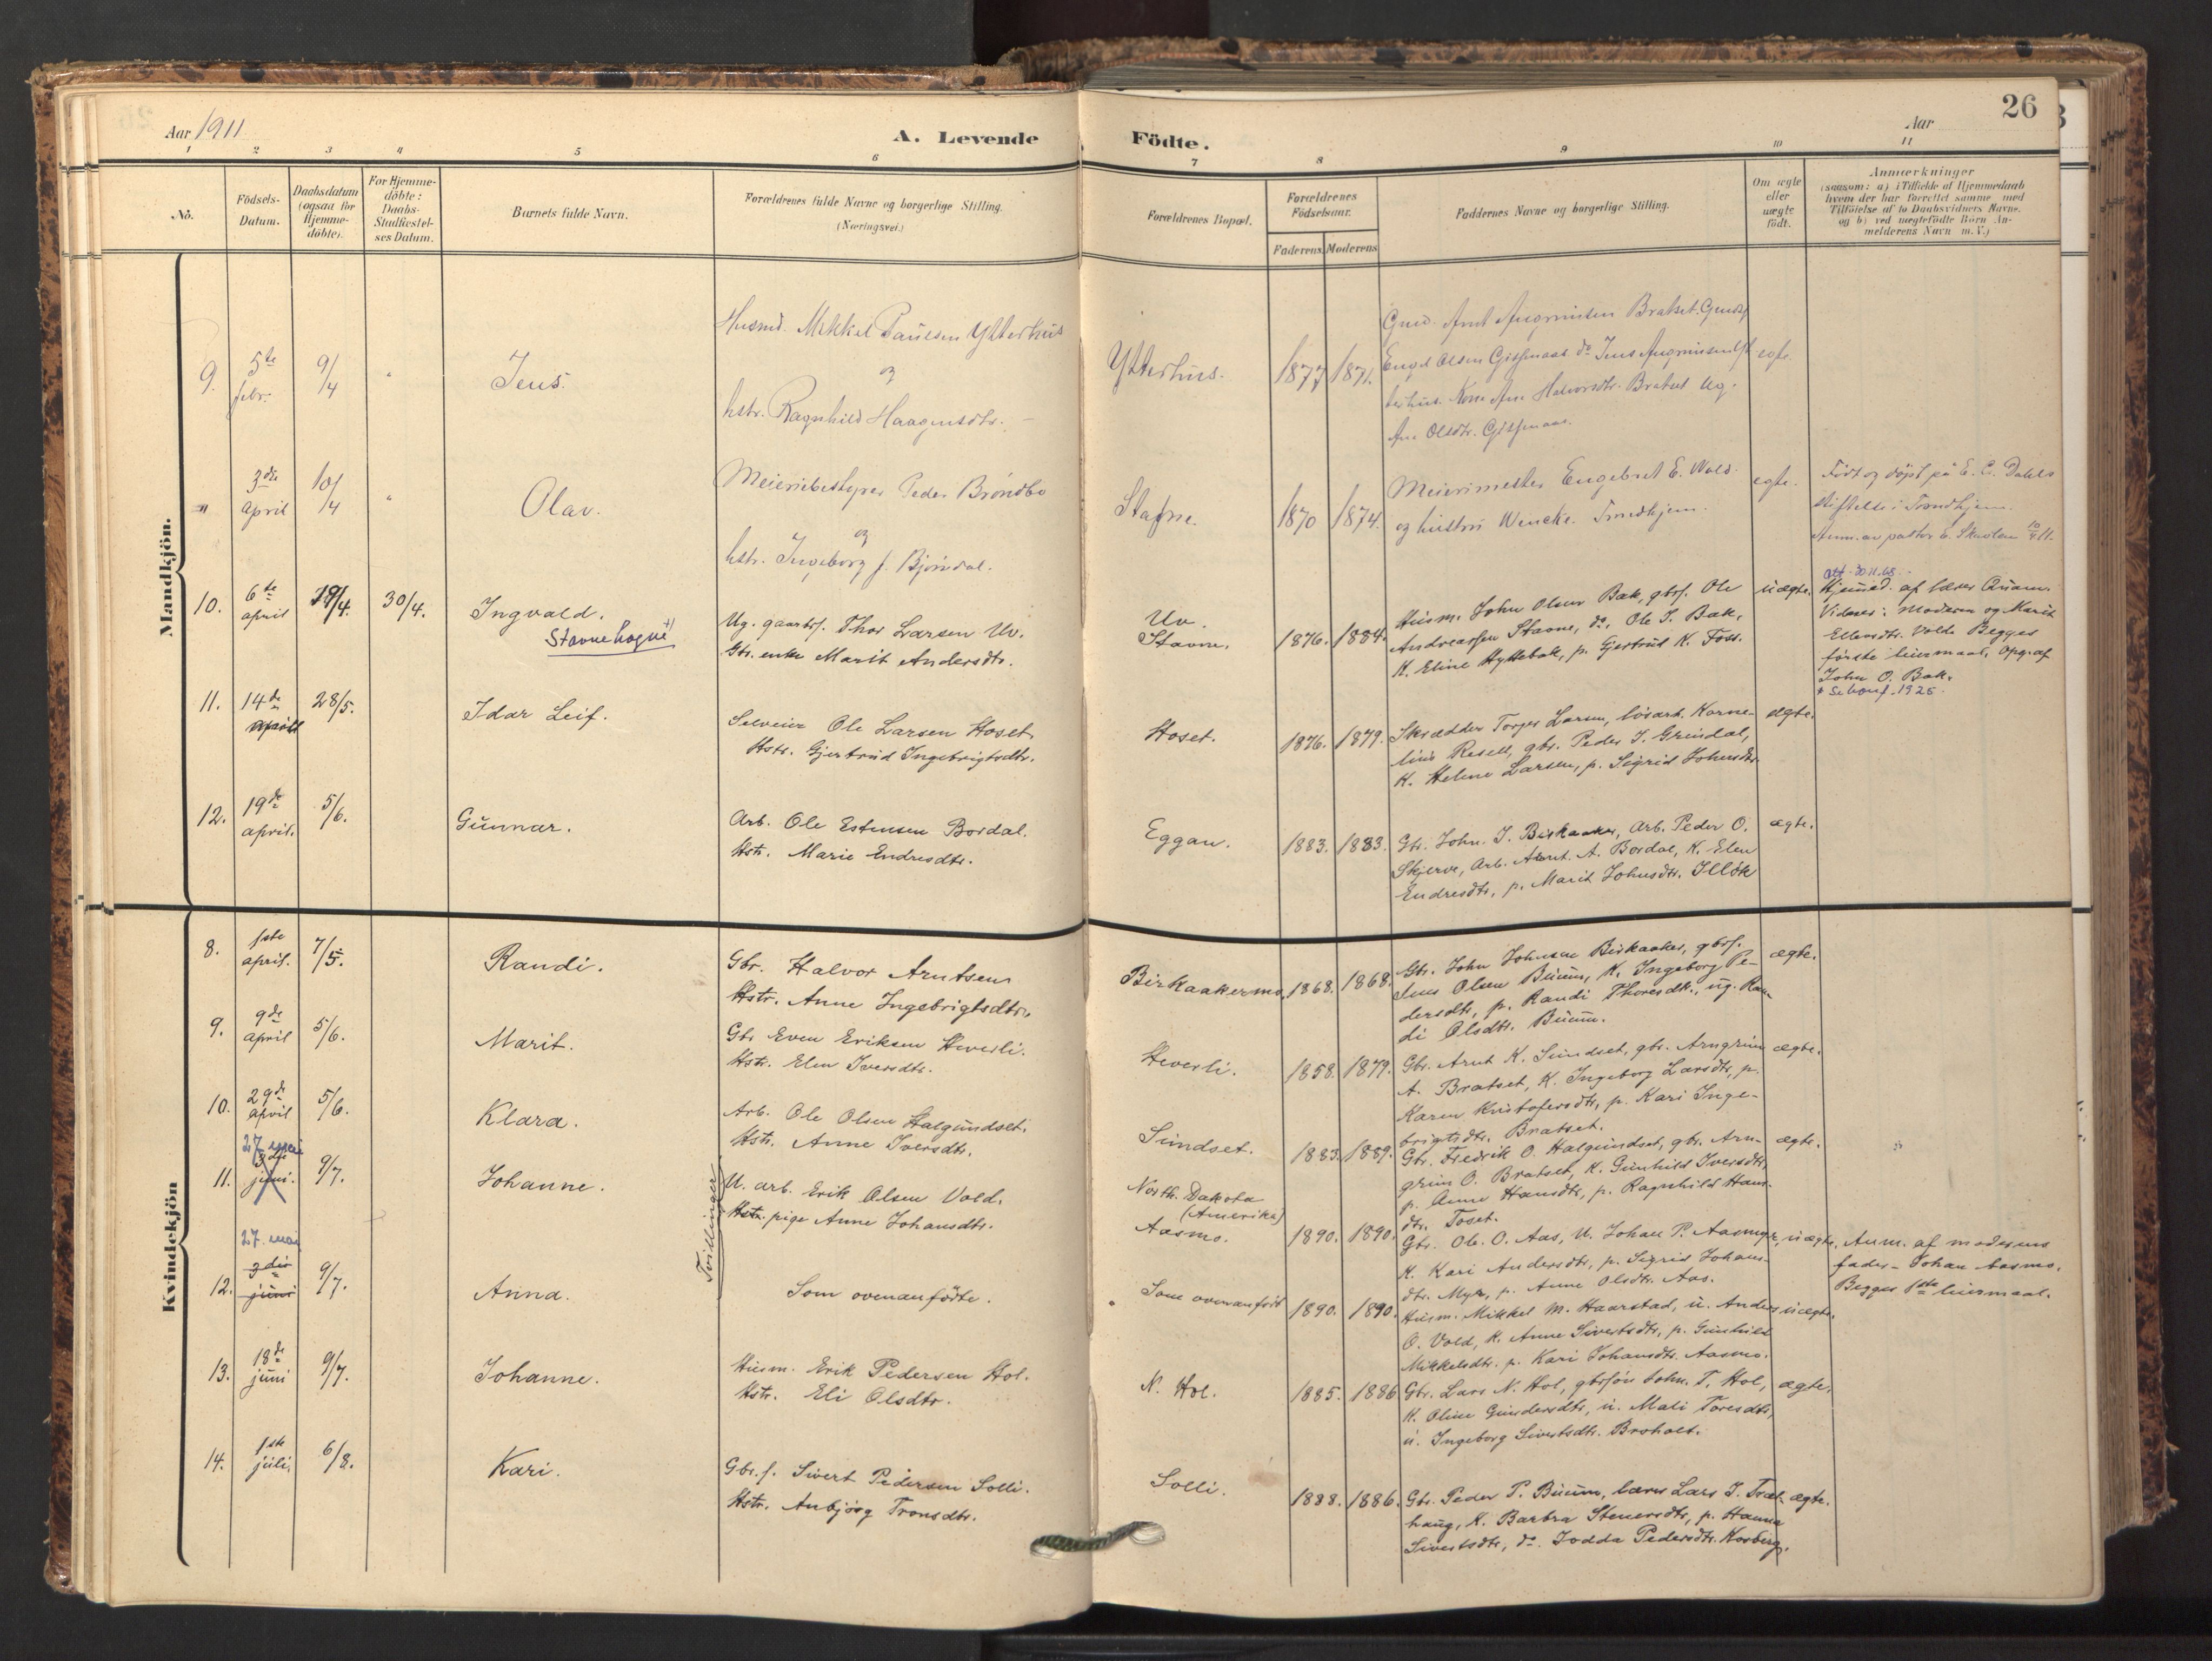 Aar 1911
A. Levende Födte.
Aar
26
1 2 3 4 5 6 7 8 9 10 11
No.
Födsels-
Datum.
Daabsdatum
(ogsaa for
Hjemme-
döbte).
For Hjemme-
döbte:
Daabs-
Stadfæstel-
ses Datum.
Barnets fulde Navn.
Forældrenes fulde Navne og borgerlige Stilling.
(Næringsvei.)
Forældrenes Bopæl.
Forældrenes
Födselsaar.
Faderens. Moderens.
Faddernes Navne og borgerlige Stilling.
Om ægte
eller
uægte
födt.
Anmærkninger
(saasom: a) i Tilfælde af Hjemmedaab
hvem der har forrettet samme med
Tilföielse af to Daabsvidners Navne,
og b) ved uægtefödte Börn An-
melderens Navn m. V.)
Mandkjön.
9. 5te febr. 9/4 " Jens.
Husmd. Mikkel Paulsen Ytterhus
og
hstr. Ragnhild Haagensdtr.
Ytterhus. 1877 1871.
Bratset
Engel Olsen do Jens
terhus. Kone Ane Halvorsdtr. Bratset ug.
Ane Olsdtr.
egte.
" 3die april 10/4 " Olav.
Meieribestyrer Peder Bröndbo
og
hstr. Ingeborg f. Bjørndal.
Stavne. 1870 1874.
Meierimester Engebret E. Wold
og hustru Wencke. Trondhjem.
egte.
Født og døpt på E. C. Dahls
stiftelse i Trondhjem.
Anm. av pastor E. Skavlan 10/4 11.
10. 6te april 17/4. 30/4. Ingvald.
Stavnehogne +)
Ug. gaardbr. Thor Larsen Uv.
Gbr. enke Marit Andersdtr.
Uv.
Stavne.
1876. 1884.
Husm. John Olsen Bak, gbrs. Ole
Andreassen Stavne, do, Ole J. Bak,
K. Eline Hyttebak, p. Gjertrud K. Foss.
uægte.
Att. 30.11.68.
Hjemmed. af lærer Qvam.
Vidner: Moderen og Marit
Ellensdtr. Volde Begges
förste leiermaal, Opg. af
John O. Bak.
+ Se bevf. 1925.
11. 14de april 28/5. Idar Leif.
Selveier Ole Larsen Hoset.
Hstr. Gjertrud Ingebrigtsdtr.
Hoset. 1876. 1879.
Skrædder Torger Larsen, lösarb. Korne-
lius Resell, gbr. Peder J. Grindal,
K. Helene Larsen, p. Sigrid Johnsdtr.
ægte.
12. 19de april. 5/6. Gunnar.
Arb. Ole Estensen Bordal.
Hstr. Marie Endresdtr.
Eggan. 1883. 1883.
Gbr. John J. Birkaaker, Arb. Peder O.
Skjerve, Arb. Arnt A. Bordal, K. Elen
Endresdtr, p. Marit Johnsdtr. Illök
ægte.
Kvindekjön
8. 1ste april. 7/5. Randi.
Gbr. Halvor Arntsen
Hstr. Anne Ingebrigtsdtr.
Birkaakermo. 1868. 1868.
Gbr. John Johnsen Birkaaker, gbrs.
Jens Olsen Buum, K. Ingeborg Pe-
dersdtr, p. Randi Thoresdtr., ug. Ran-
di Olsdtr. Buum.
ægte.
9. 9de april 5/6. Marit.
Gbr Even Eriksen Heverli.
Hstr. Elen Iversdtr.
Heverli. 1858. 1879.
Gbr. Arnt K. Sundset, gbr. Arngrim
A. Bratset, K. Ingeborg Larsdtr, p.
Karen Kristofersdtr, p. Kari Inge-
brigtsdtr. Bratset.
ægte.
10. 29de april 5/6. Klara.
Arb. Ole Olsen Halgundset.
Hstr. Anne Iversdtr.
Sundset. 1883. 1889.
Gbr. Fredrik O. Halgundset, gbr. Arn-
grim O. Bratset, K. Gunhild Iversdtr,
p. Anne Hansdtr, p. Ragnhild Hans-
dtr. Toset.
ægte.
11. 27. mai 3die juni. 9/7. Johanne.
Tvillinger
U. arb. Erik Olsen Vold.
Hstr. pige Anne Johansdtr.
North. Dakota
(Amerika)
Aasmo.
1890. 1890.
Gbr. Ole O. Aas, U. Johan P. Aasmyr,
K. Kari Andersdtr, p. Sigrid Johans-
dtr. Myr, p. Anne Olsdtr. Aas.
uægte.
Anm. af moderens
fader - Johan Aasmo.
Begges 1ste leiermaal.
12. 27. mai 3die juni 9/7. Anna.
Som ovenanfödte.
Som ovenanfört 1890. 1890.
Husm. Mikkel M. Haarstad, u. Anders
O. Vold, K. Anne Sivertsdtr, p. Gunhild
Mikkelsdtr. p. Kari Johansdtr. Aasmo.
uægte.
13. 18de juni 9/7. Johanne.
Husm. Erik Pedersen Hol.
Hstr. Eli Olsdtr.
N. Hol. 1885. 1886
Gbr. Lars N. Hol, gbrsön John. T. Hol,
K. Oline Gundersdtr, u. Mali Toresdtr,
u. Ingeborg Sivertsdtr. Broholt.
ægte.
14. 1ste juli. 6/8. Kari.
Gbr.s. Sivert Pedersen Solli.
Hstr. Anbjörg Tronsdtr.
Solli. 1888. 1886.
Gbr. Peder P. Buum, lærer Lars J. Træt-
haug, K. Barbra Steversdtr, p. Hanna
Sivertsdtr, do. Jodda Pedersdtr. Kosberg.
ægte.